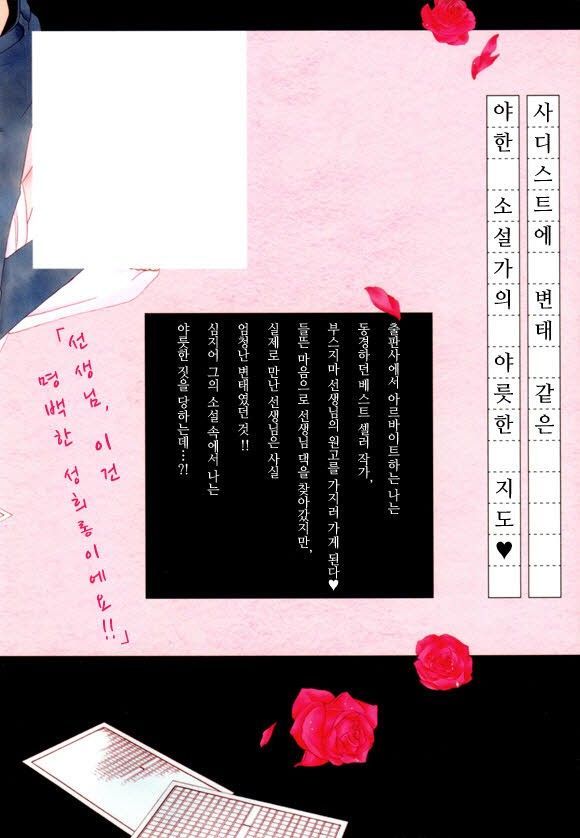 사디스트에 변태 같은
야한 소설가의 야릇한 지도♥
출판사에서 아르바이트하는 나는
동경하던 베스트 셀러 작가,
부스지마 선생님의 원고를 가지러 가게 된다♥
들뜬 마음으로 선생님 댁을 찾아갔지만,
실제로 만난 선생님은 사실
엄청난 변태였던 것!!
심지어 그의 소설 속에서 나는
야릇한 짓을 당하는데…?!
「선생님, 이건
명백한 성희롱이에요!!」